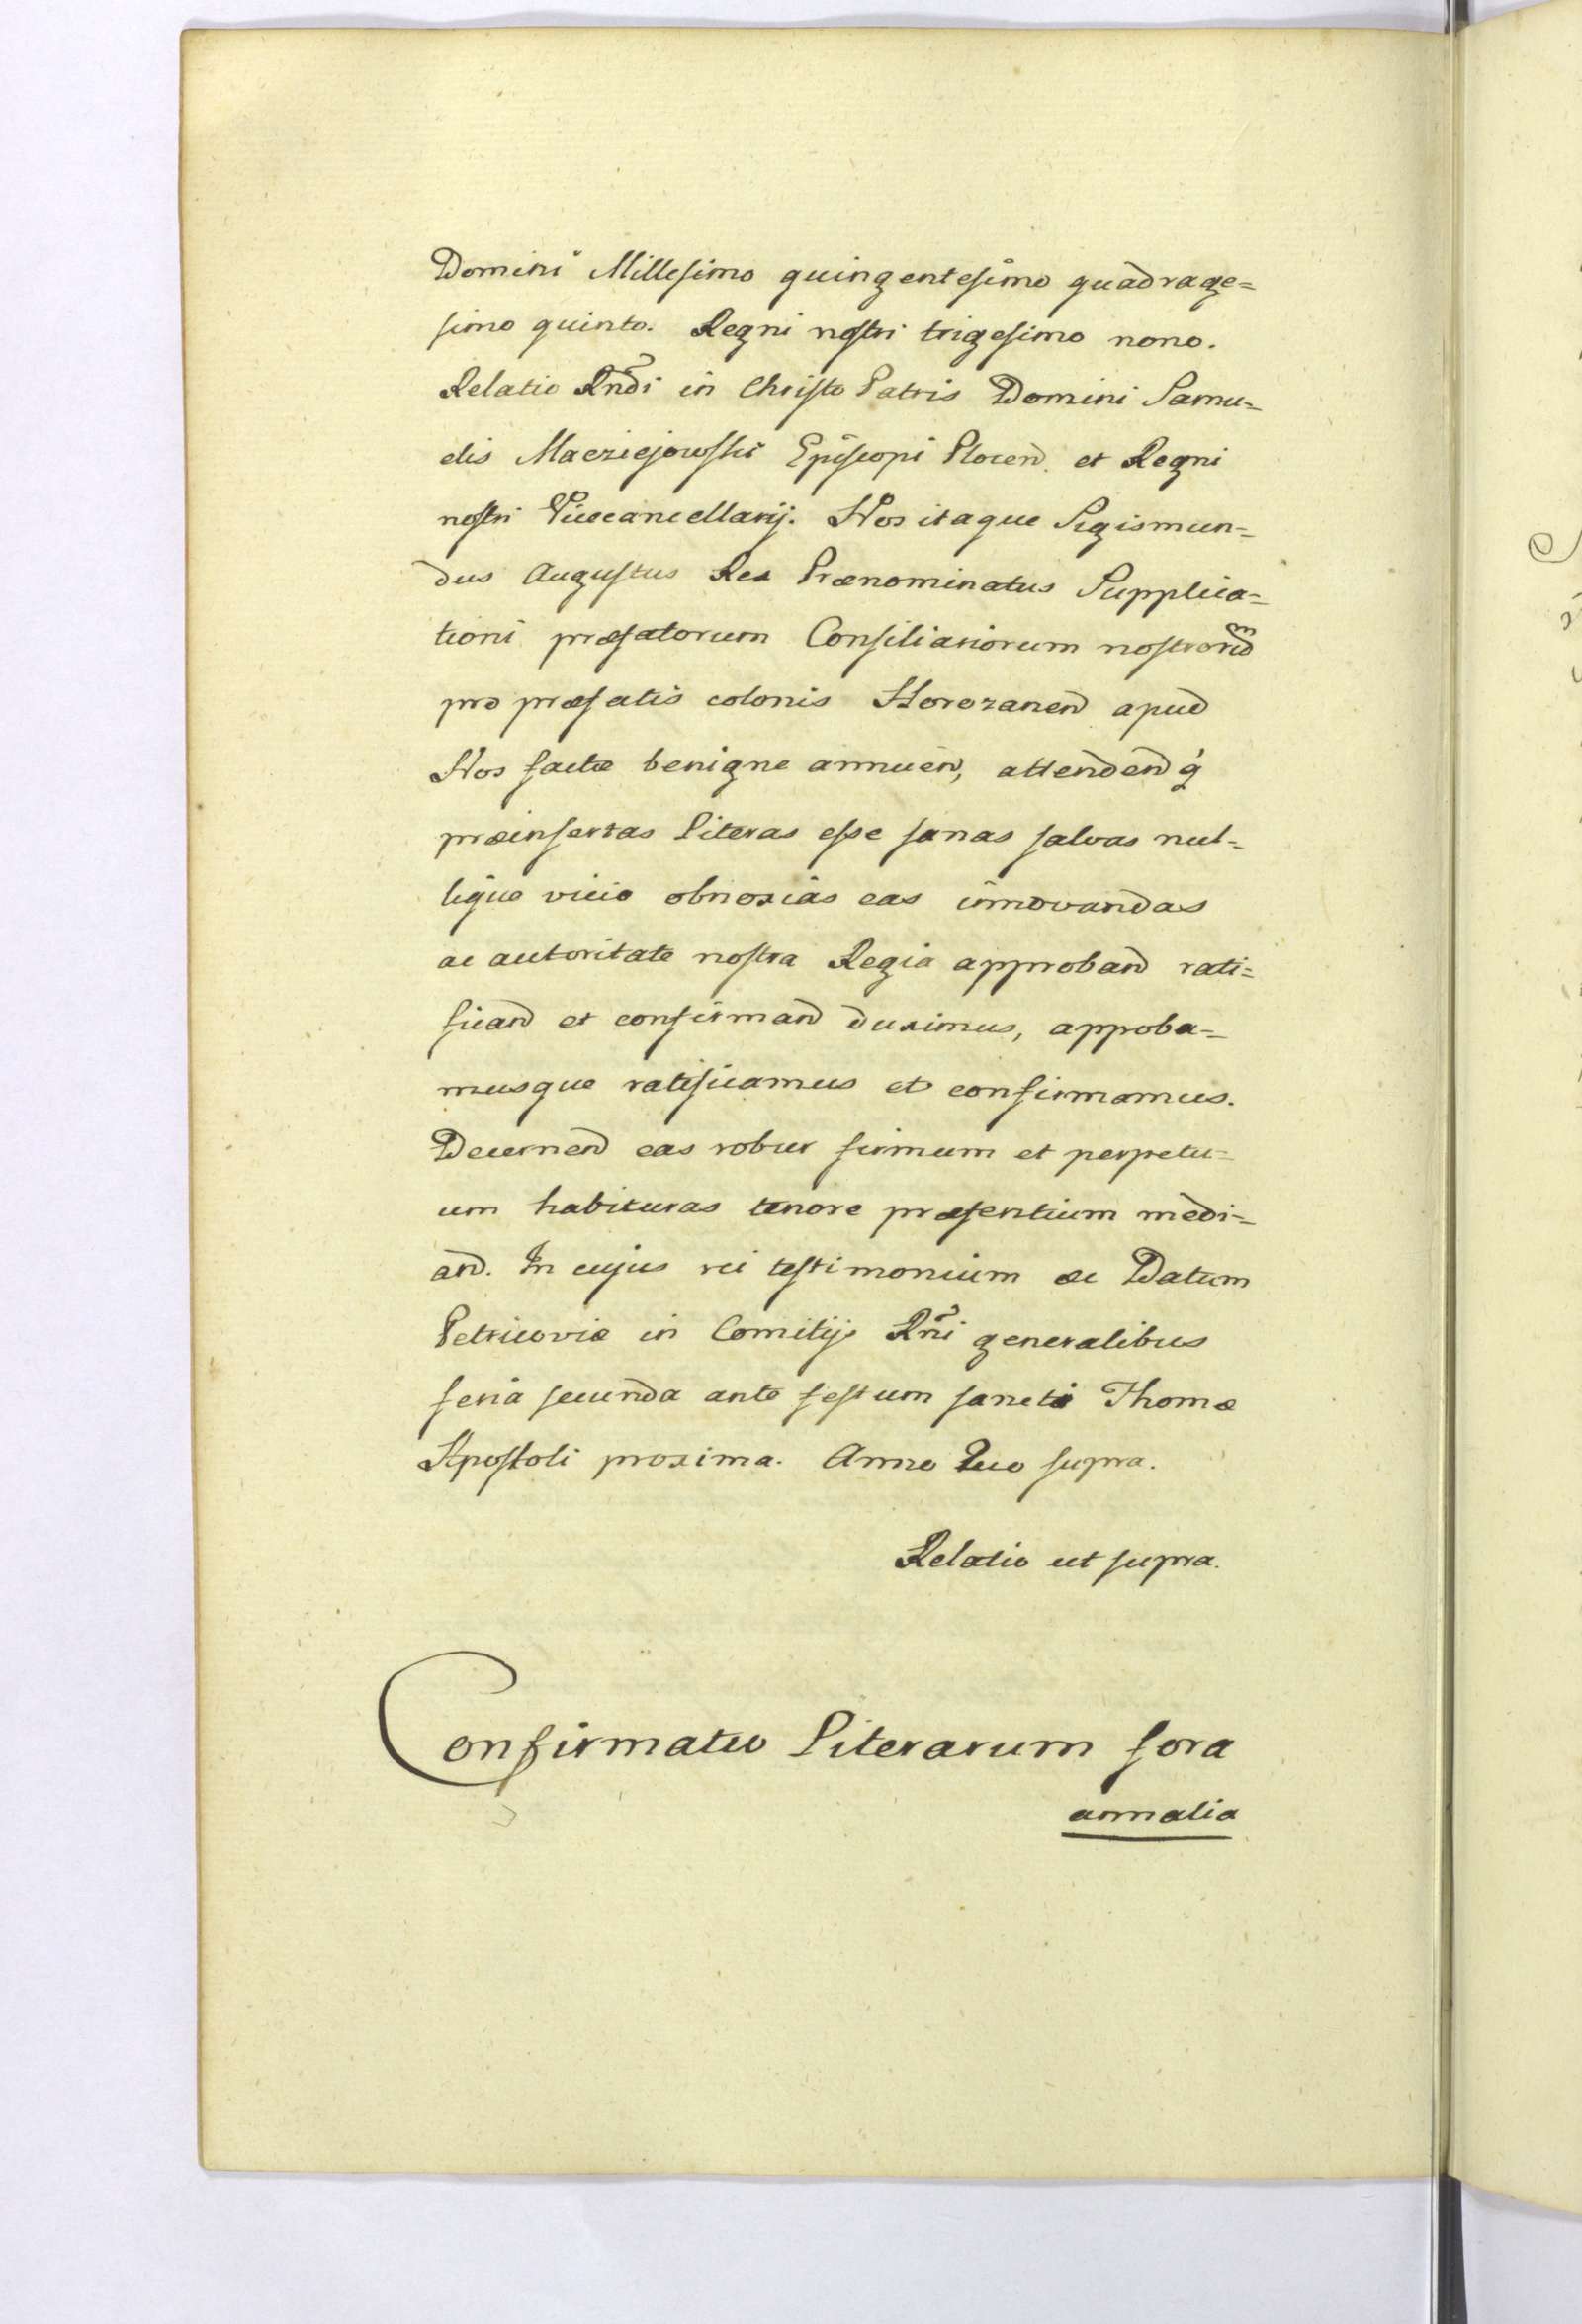 Domini Millesimo quingentesimo quadrage=
simo quinto. Regni nostri trigesimo nono.
Relatio Rndi in Christo Patris Domini Samu=
elis Macziejowski Episcopi Plocen̄. et Regni
nostri Vicecancellarij. Nos itaque Sigismun=
dus Augustus Rex Prænominatus Supplica=
tioni præfatorum Consiliariorum nostrorū
pro præfatis colonis Horozanen̄ apud
Nos factæ benigne annuen̄, attenden̄ q̀
præinsertas Literas esse sanas salvas nul=
lique vicio obnoxias eas innovandas
ac autoritate nostra Regia approban̄ rati=
fican̄ et confirman̄ duximus, approba=
musque ratificamus et confirmamus.
Decernen̄ eas robur firmum et perpetu=
um habituras tenore præsentium medi=
an̄. In cujus rei testimonium &c Datum
Petricoviæ in Comitijs Rn̄i generalibus
feria secunda ante festum sancti Thomæ
Apostoli proxima. Anno Quo supra.
Relatio ut supra.
Confirmatio Literarum fora
annalia